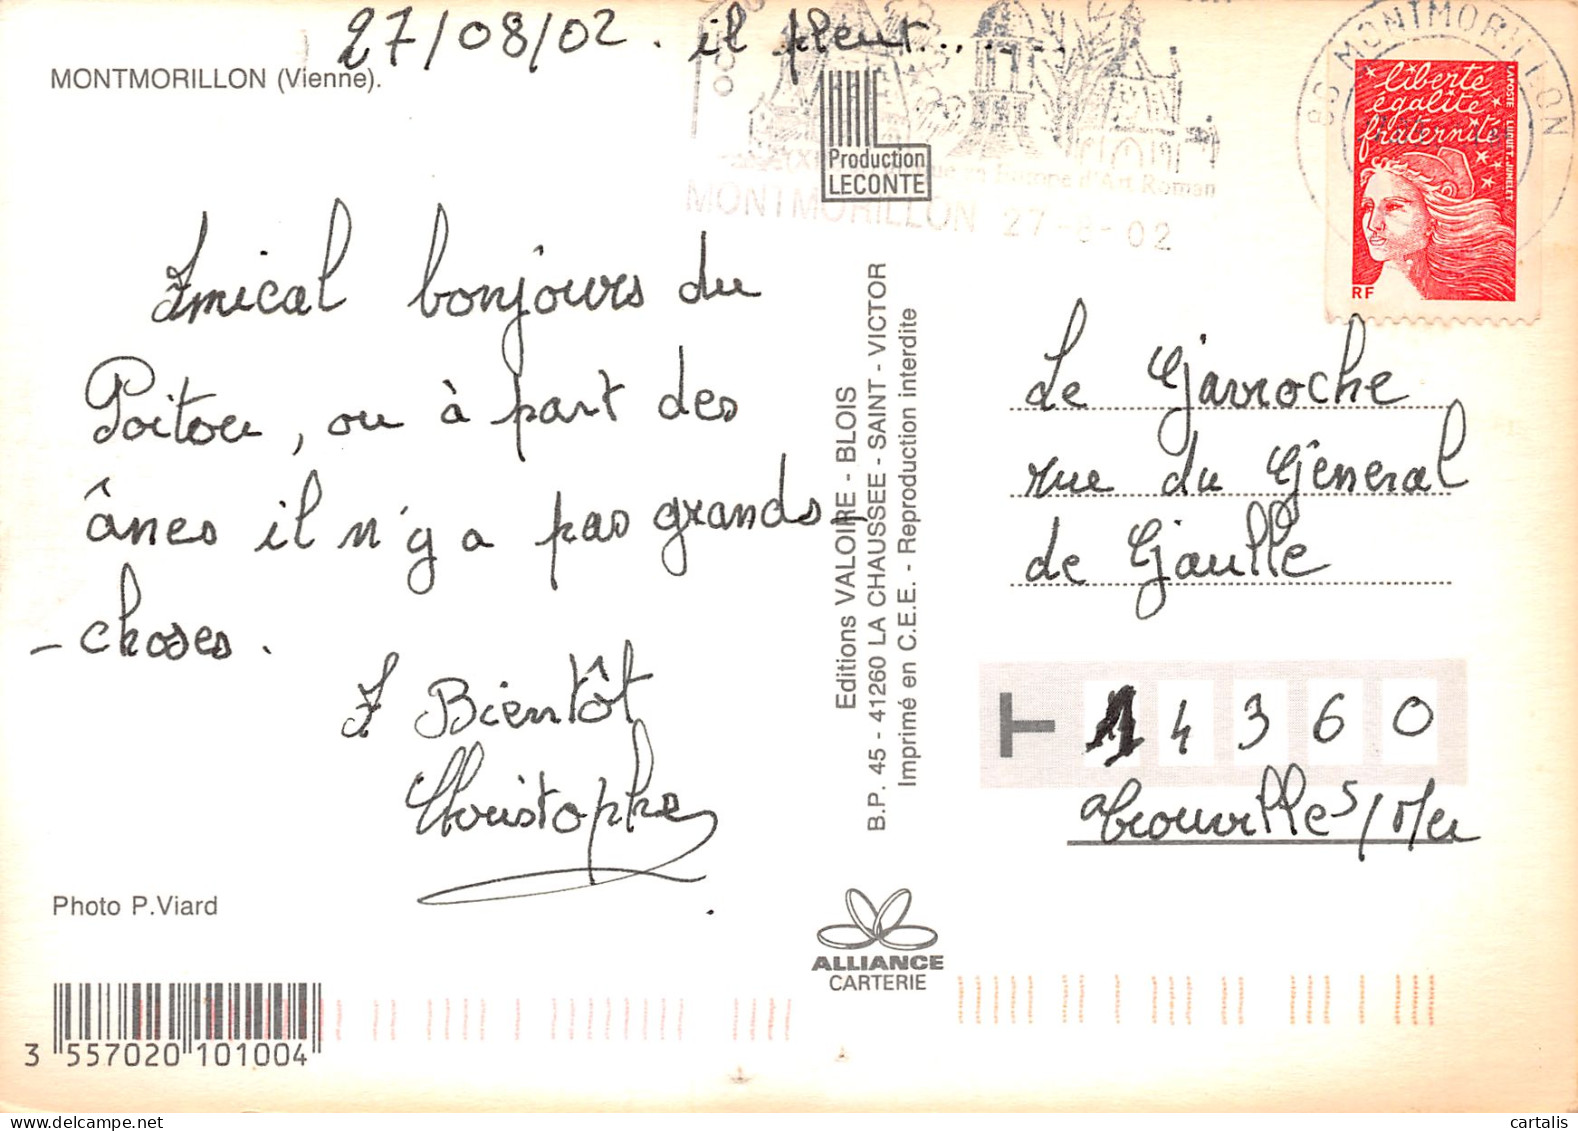 27/08/02. il pleut......
MONTMORILLON (Vienne).
Production
LECONTE
MONTMORILLON 27-8-02
86 MONTMORILLON
liberté
égalité
fraternité
LAPOSTE LUQUET.JUMELET
RF
Amical bonjours du
Poitou, ou à part des
ânes il n'y a pas grands-
-choses.
A Bientôt
Christophe
Editions VALOIRE - BLOIS
B.P. 45 - 41260 LA CHAUSSEE - SAINT - VICTOR
Imprimé en C.E.E. - Reproduction interdite
Le Gavroche
rue du Géneral
de Gaulle
T 14360
trouville s/Mer
Photo P.Viard
ALLIANCE
CARTERIE
3 557020 101004
cartalis